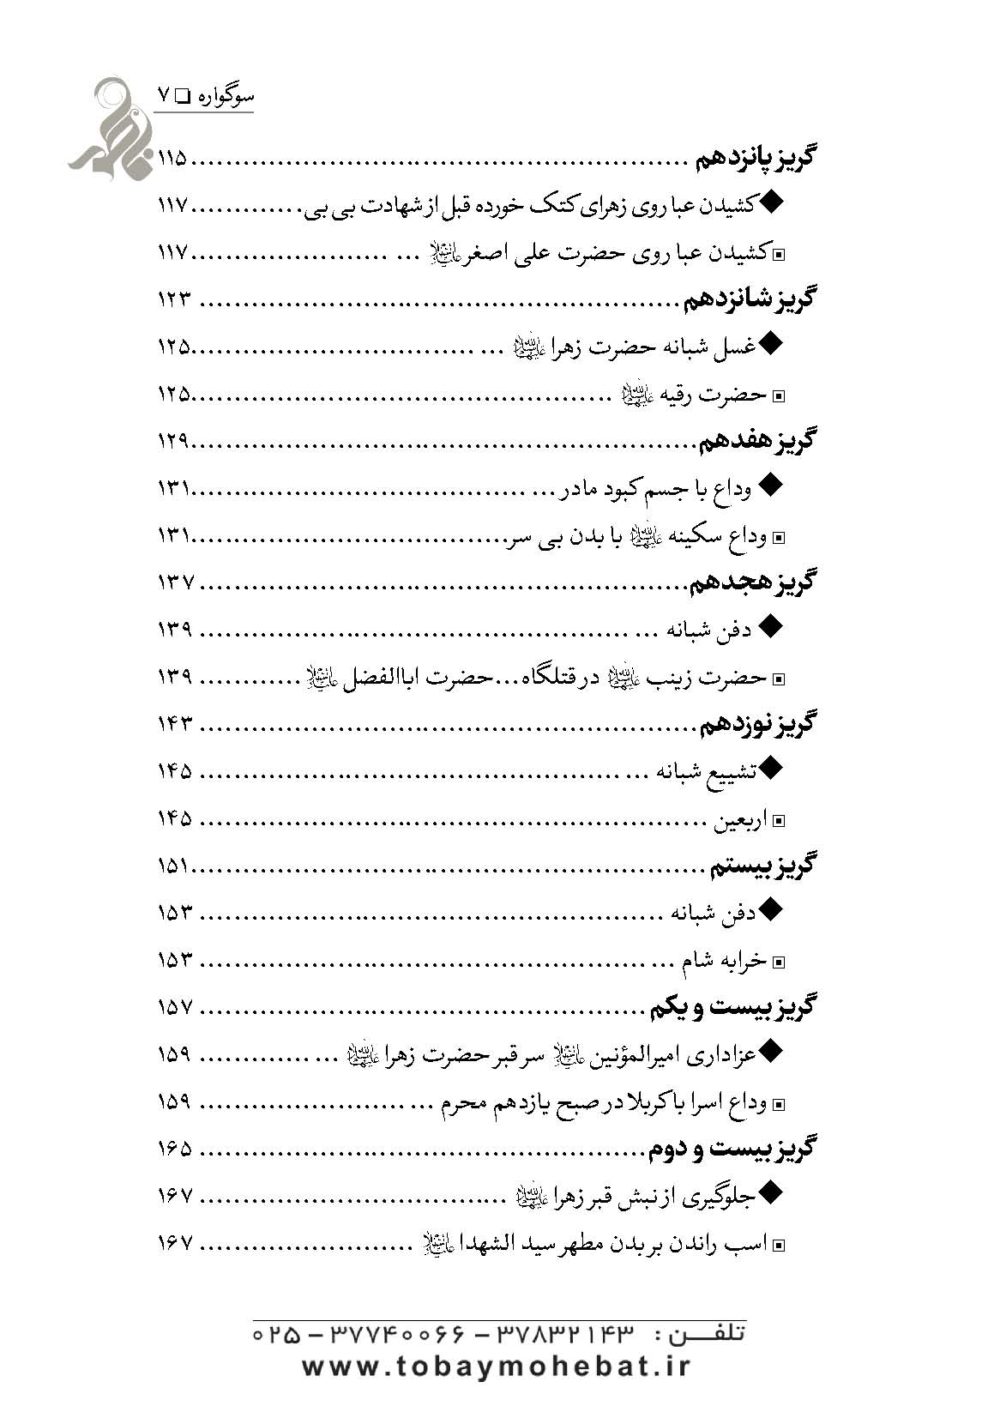 سوگواره ❏ ۷
گریز پانزدهم ........................................................ ۱۱۵
◆کشیدن عبا روی زهرای کتک خورده قبل از شهادت بی بی............. ۱۱۷
▣کشیدن عبا روی حضرت علی اصغر علیه‌السلام ... ...................... ۱۱۷
گریز شانزدهم ........................................................ ۱۲۳
◆غسل شبانه حضرت زهرا علیهاالسلام ... ................................. ۱۲۵
▣ حضرت رقیه علیهاالسلام ................................................ ۱۲۵
گریز هفدهم........................................................... ۱۲۹
◆ وداع با جسم کبود مادر... ....................................... ۱۳۱
▣ وداع سکینه علیهاالسلام با بدن بی سر..................................... ۱۳۱
گریز هجدهم......................................................... ۱۳۷
◆ دفن شبانه ... .................................................. ۱۳۹
▣ حضرت زینب علیهاالسلام در قتلگاه...حضرت اباالفضل علیه‌السلام ............ ۱۳۹
گریز نوزدهم.......................................................... ۱۴۳
◆تشییع شبانه ... ................................................. ۱۴۵
▣ اربعین ........................................................... ۱۴۵
گریز بیستم ............................................................ ۱۵۱
◆دفن شبانه ...................................................... ۱۵۳
▣ خرابه شام ... .................................................... ۱۵۳
گریز بیست و یکم .................................................... ۱۵۷
◆عزاداری امیرالمؤنین علیه‌السلام سر قبر حضرت زهرا علیهاالسلام ... ............. ۱۵۹
▣ وداع اسرا با کربلا در صبح یازدهم محرم ... ........................ ۱۵۹
گریز بیست و دوم.................................................... ۱۶۵
◆جلوگیری از نبش قبر زهرا علیهاالسلام ... ................................. ۱۶۷
▣ اسب راندن بر بدن مطهر سید الشهدا علیه‌السلام ......................... ۱۶۷
تلفـــن : ۳۷۸۳۲۱۴۳ – ۳۷۷۴۰۰۶۶ – ۰۲۵
www.tobaymohebat.ir